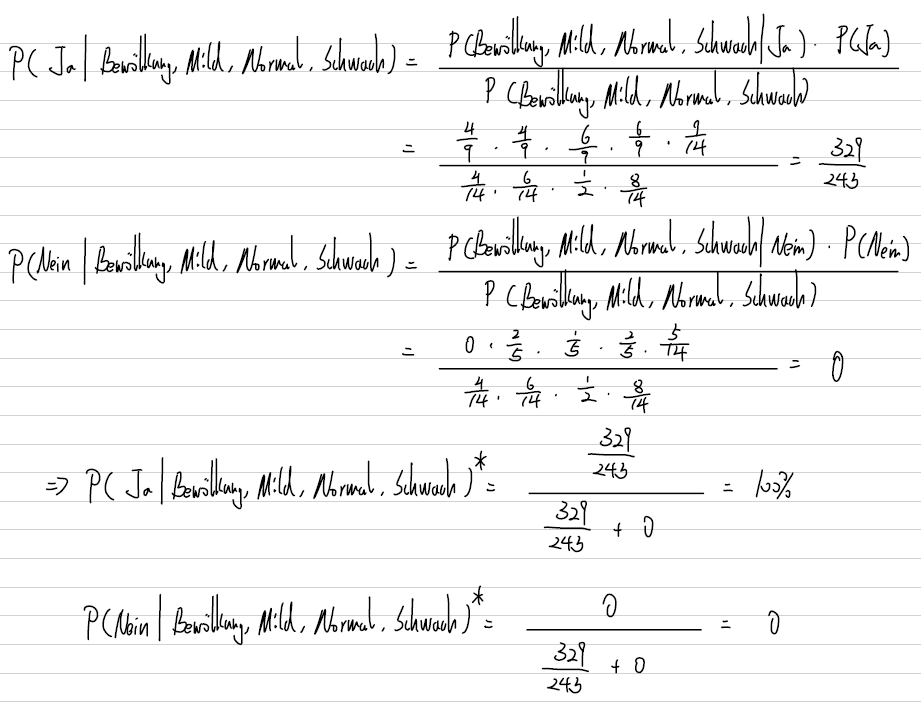 P( Ja | Bewölkung, Mild, Normal, Schwach) = P(Bewölkung, Mild, Normal, Schwach | Ja) · P(Ja) / P(Bewölkung, Mild, Normal, Schwach)
= (4/9 · 4/9 · 6/9 · 6/9 · 9/14) / (4/14 · 6/14 · 1/2 · 8/14) = 329/243
P(Nein | Bewölkung, Mild, Normal, Schwach ) = P(Bewölkung, Mild, Normal, Schwach | Nein) · P(Nein) / P(Bewölkung, Mild, Normal, Schwach)
= (0 · 2/5 · 1/5 · 2/5 · 5/14) / (4/14 · 6/14 · 1/2 · 8/14) = 0
=> P( Ja | Bewölkung, Mild, Normal, Schwach )* = (329/243) / (329/243 + 0) = 100%
P(Nein | Bewölkung, Mild, Normal, Schwach)* = 0 / (329/243 + 0) = 0